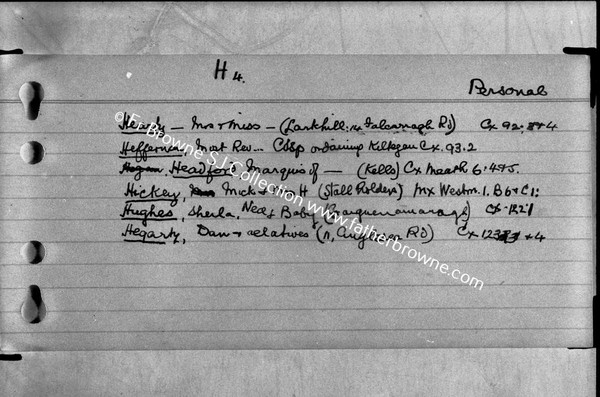 H 4.
Personal
Healy — Mrs & Miss — (Larkhill: 14 Falcarragh Rd) Cx 92. 3 & 4
Heffernan Most Rev... CSSp ordaining Kiltegan Cx. 93.2
Headfort Marquis of — (Kells) Cx Meath 6. 4 & 5.
Hickey, Mick & H (Stall Holders) Mx Westm. 1. B6 & C1:
Hughes, Sheila, Ned & Baby Cx
Hegarty, Dan & relatives Rd) Cx 123 & 4
© Fr Browne SJ Collection www.fatherbrowne.com